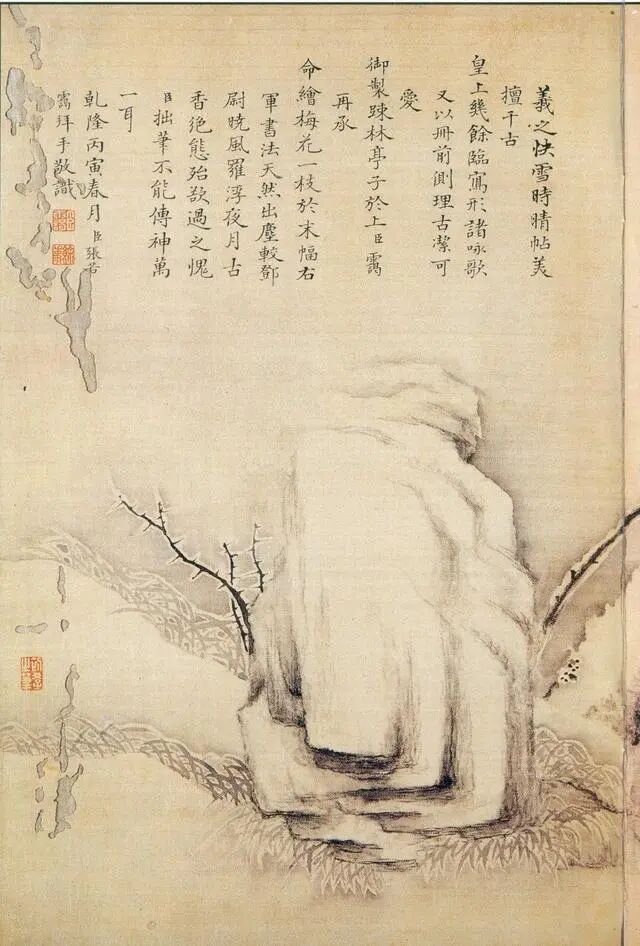 羲之快雪時晴帖美
擅千古
皇上幾餘臨寫形諸詠歌
又以冊前側理古潔可
愛
御製踈林亭子於上臣靄
再承
命繪梅花一枝於末幅右
軍書法天然出塵較鄧
尉曉風羅浮夜月古
香絶態殆欲過之愧
臣拙筆不能傳神萬
一耳
乾隆丙寅春月臣張若
靄拜手敬識